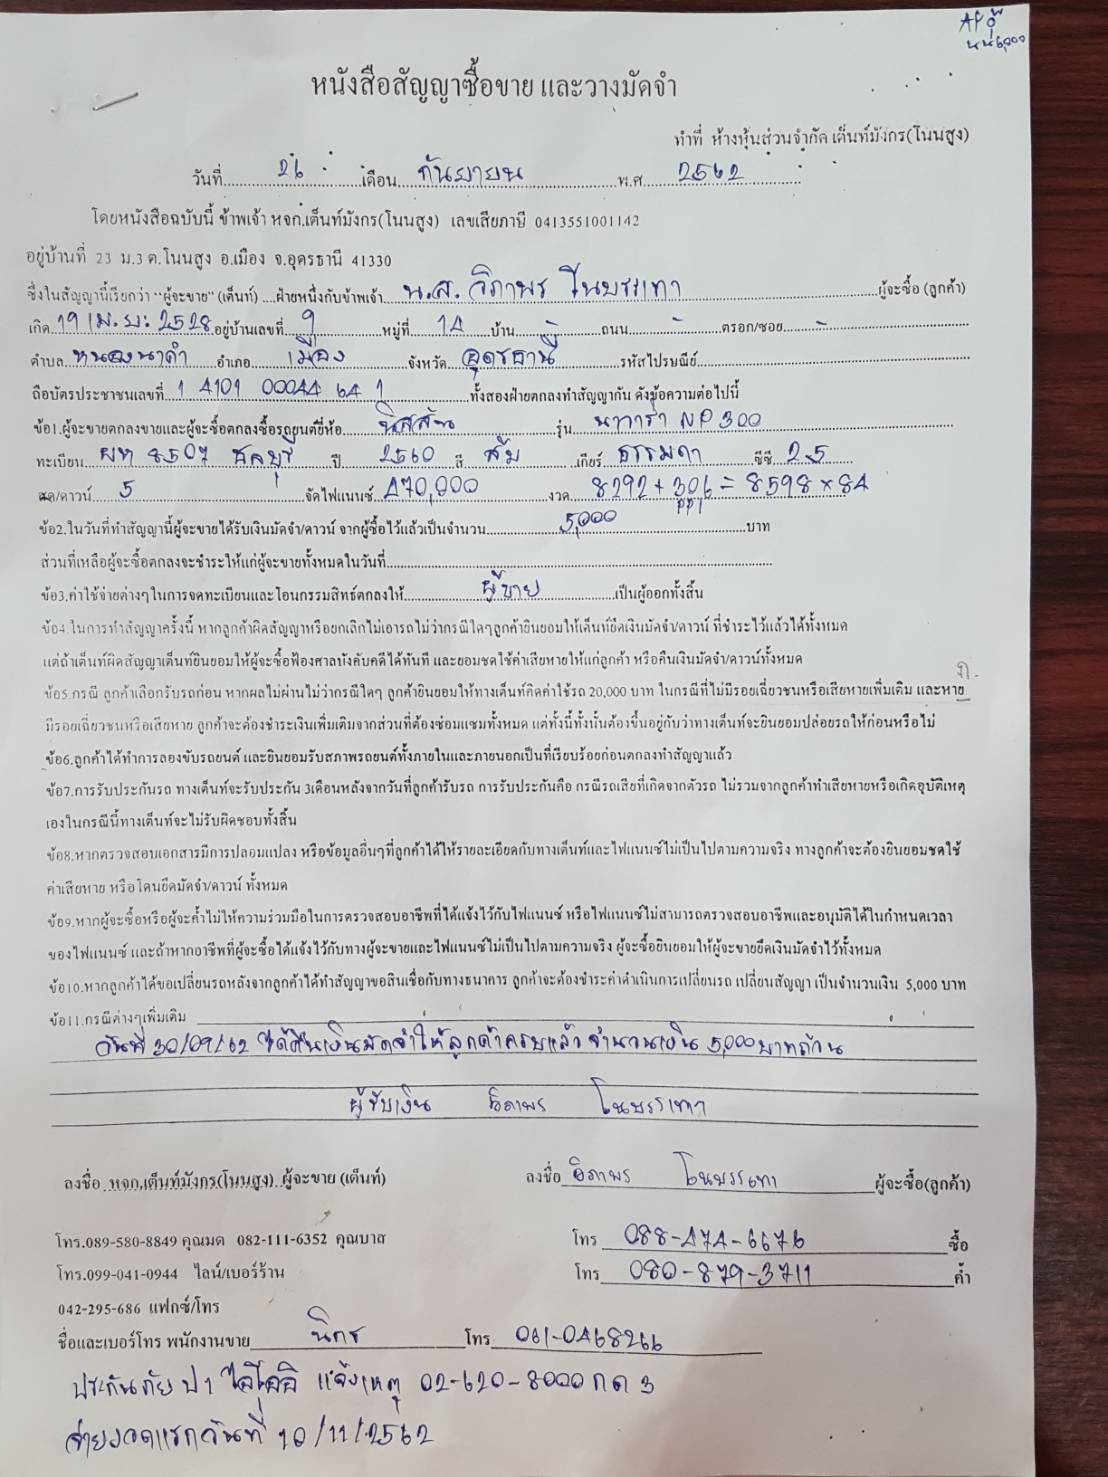 หนังสือสัญญาซื้อขาย และวางมัดจำ
ทำที่ ห้างหุ้นส่วนจำกัด เต็นท์มังกร(โนนสูง)
วันที่ 26 เดือน กันยายน พ.ศ. 2562
โดยหนังสือฉบับนี้ ข้าพเจ้า หจก.เต็นท์มังกร(โนนสูง) เลขเสียภาษี 0413551001142
อยู่บ้านที่ 23 ม.3 ต.โนนสูง อ.เมือง จ.อุดรธานี 41330
ซึ่งในสัญญานี้เรียกว่า "ผู้จะขาย" (เต็นท์) ฝ่ายหนึ่งกับข้าพเจ้า น.ส. วิภาพร โนบรรเทา ผู้จะซื้อ (ลูกค้า)
เกิด 19 เม.ย. 2528 อยู่บ้านเลขที่ 9 หมู่ที่ 14 บ้าน - ถนน - ตรอก/ซอย -
ตำบล หนองนาคำ อำเภอ เมือง จังหวัด อุดรธานี รหัสไปรษณีย์
ถือบัตรประชาชนเลขที่ 1 4101 00044 64 1 ทั้งสองฝ่ายตกลงทำสัญญากัน ดังข้อความต่อไปนี้
ข้อ1.ผู้จะขายตกลงขายและผู้จะซื้อตกลงซื้อรถยนต์ยี่ห้อ นิสสัน รุ่น นาวาร่า NP300
ทะเบียน ผท 8507 ชลบุรี ปี 2560 สี ส้ม เกียร์ ธรรมดา ซีซี 2.5
สด/ดาวน์ 5 จัดไฟแนนซ์ 470,000 งวด 8292 + 306 = 8598 × 84
PPI
ข้อ2.ในวันที่ทำสัญญานี้ผู้จะขายได้รับเงินมัดจำ/ดาวน์ จากผู้ซื้อไว้แล้วเป็นจำนวน 5,000 บาท
ส่วนที่เหลือผู้จะซื้อตกลงจะชำระให้แก่ผู้จะขายทั้งหมดในวันที่
ข้อ3.ค่าใช้จ่ายต่างๆในการจดทะเบียนและโอนกรรมสิทธ์ตกลงให้ ผู้ขาย เป็นผู้ออกทั้งสิ้น
ข้อ4.ในการทำสัญญาครั้งนี้ หากลูกค้าผิดสัญญาหรือยกเลิกไม่เอารถไม่ว่ากรณีใดๆลูกค้ายินยอมให้เต็นท์ยึดเงินมัดจำ/ดาวน์ ที่ชำระไว้แล้วได้ทั้งหมด
แต่ถ้าเต็นท์ผิดสัญญาเต็นท์ยินยอมให้ผู้จะซื้อฟ้องศาลบังคับคดีได้ทันที และยอมชดใช้ค่าเสียหายให้แก่ลูกค้า หรือคืนเงินมัดจำ/ดาวน์ทั้งหมด
ข้อ5.กรณี ลูกค้าเลือกรับรถก่อน หากผลไม่ผ่านไม่ว่ากรณีใดๆ ลูกค้ายินยอมให้ทางเต็นท์คิดค่าใช้รถ 20,000 บาท ในกรณีที่ไม่มีรอยเฉี่ยวชนหรือเสียหายเพิ่มเติม และหาย
มีรอยเฉี่ยวชนหรือเสียหาย ลูกค้าจะต้องชำระเงินเพิ่มเติมจากส่วนที่ต้องซ่อมแซมทั้งหมด แต่ทั้งนี้ทั้งนั้นต้องขึ้นอยู่กับว่าทางเต็นท์จะยินยอมปล่อยรถให้ก่อนหรือไม่
ข้อ6.ลูกค้าได้ทำการลองขับรถยนต์ และยินยอมรับสภาพรถยนต์ทั้งภายในและภายนอกเป็นที่เรียบร้อยก่อนตกลงทำสัญญาแล้ว
ข้อ7.การรับประกันรถ ทางเต็นท์จะรับประกัน 3เดือนหลังจากวันที่ลูกค้ารับรถ การรับประกันคือ กรณีรถเสียที่เกิดจากตัวรถ ไม่รวมจากลูกค้าทำเสียหายหรือเกิดอุบัติเหตุ
เองในกรณีนี้ทางเต็นท์จะไม่รับผิดชอบทั้งสิ้น
ข้อ8.หากตรวจสอบเอกสารมีการปลอมแปลง หรือข้อมูลอื่นๆที่ลูกค้าได้ให้รายละเอียดกับทางเต็นท์และไฟแนนซ์ไม่เป็นไปตามความจริง ทางลูกค้าจะต้องยินยอมชดใช้
ค่าเสียหาย หรือโดนยึดมัดจำ/ดาวน์ ทั้งหมด
ข้อ9.หากผู้จะซื้อหรือผู้จะค้ำไม่ให้ความร่วมมือในการตรวจสอบอาชีพที่ได้แจ้งไว้กับไฟแนนซ์ หรือไฟแนนซ์ไม่สามารถตรวจสอบอาชีพและอนุมัติได้ในกำหนดเวลา
ของไฟแนนซ์ และถ้าหากอาชีพที่ผู้จะซื้อได้แจ้งไว้กับทางผู้จะขายและไฟแนนซ์ไม่เป็นไปตามความจริง ผู้จะซื้อยินยอมให้ผู้จะขายยึดเงินมัดจำไว้ทั้งหมด
ข้อ10.หากลูกค้าได้ขอเปลี่ยนรถหลังจากลูกค้าได้ทำสัญญาขอสินเชื่อกับทางธนาคาร ลูกค้าจะต้องชำระค่าดำเนินการเปลี่ยนรถ เปลี่ยนสัญญา เป็นจำนวนเงิน 5,000 บาท
ข้อ11.กรณีต่างๆเพิ่มเติม
วันที่ 30/09/62 ได้คืนเงินมัดจำให้ลูกค้าครบแล้ว จำนวนเงิน 5,000 บาทถ้วน
ผู้รับเงิน วิภาพร โนบรรเทา
ลงชื่อ หจก.เต็นท์มังกร(โนนสูง) ผู้จะขาย (เต็นท์) ลงชื่อ วิภาพร โนบรรเทา ผู้จะซื้อ(ลูกค้า)
โทร.089-580-8849 คุณมด 082-111-6352 คุณบาส โทร 088-474-6676 ซื้อ
โทร.099-041-0944 ไลน์/เบอร์ร้าน โทร 080-879-3711 ค้ำ
042-295-686 แฟกซ์/โทร
ชื่อและเบอร์โทร พนักงานขาย นิกร โทร 061-0468266
ประกันภัย ป1 ไอโออิ แจ้งเหตุ 02-620-8000 กด 3
จ่ายงวดแรกวันที่ 10/11/2562